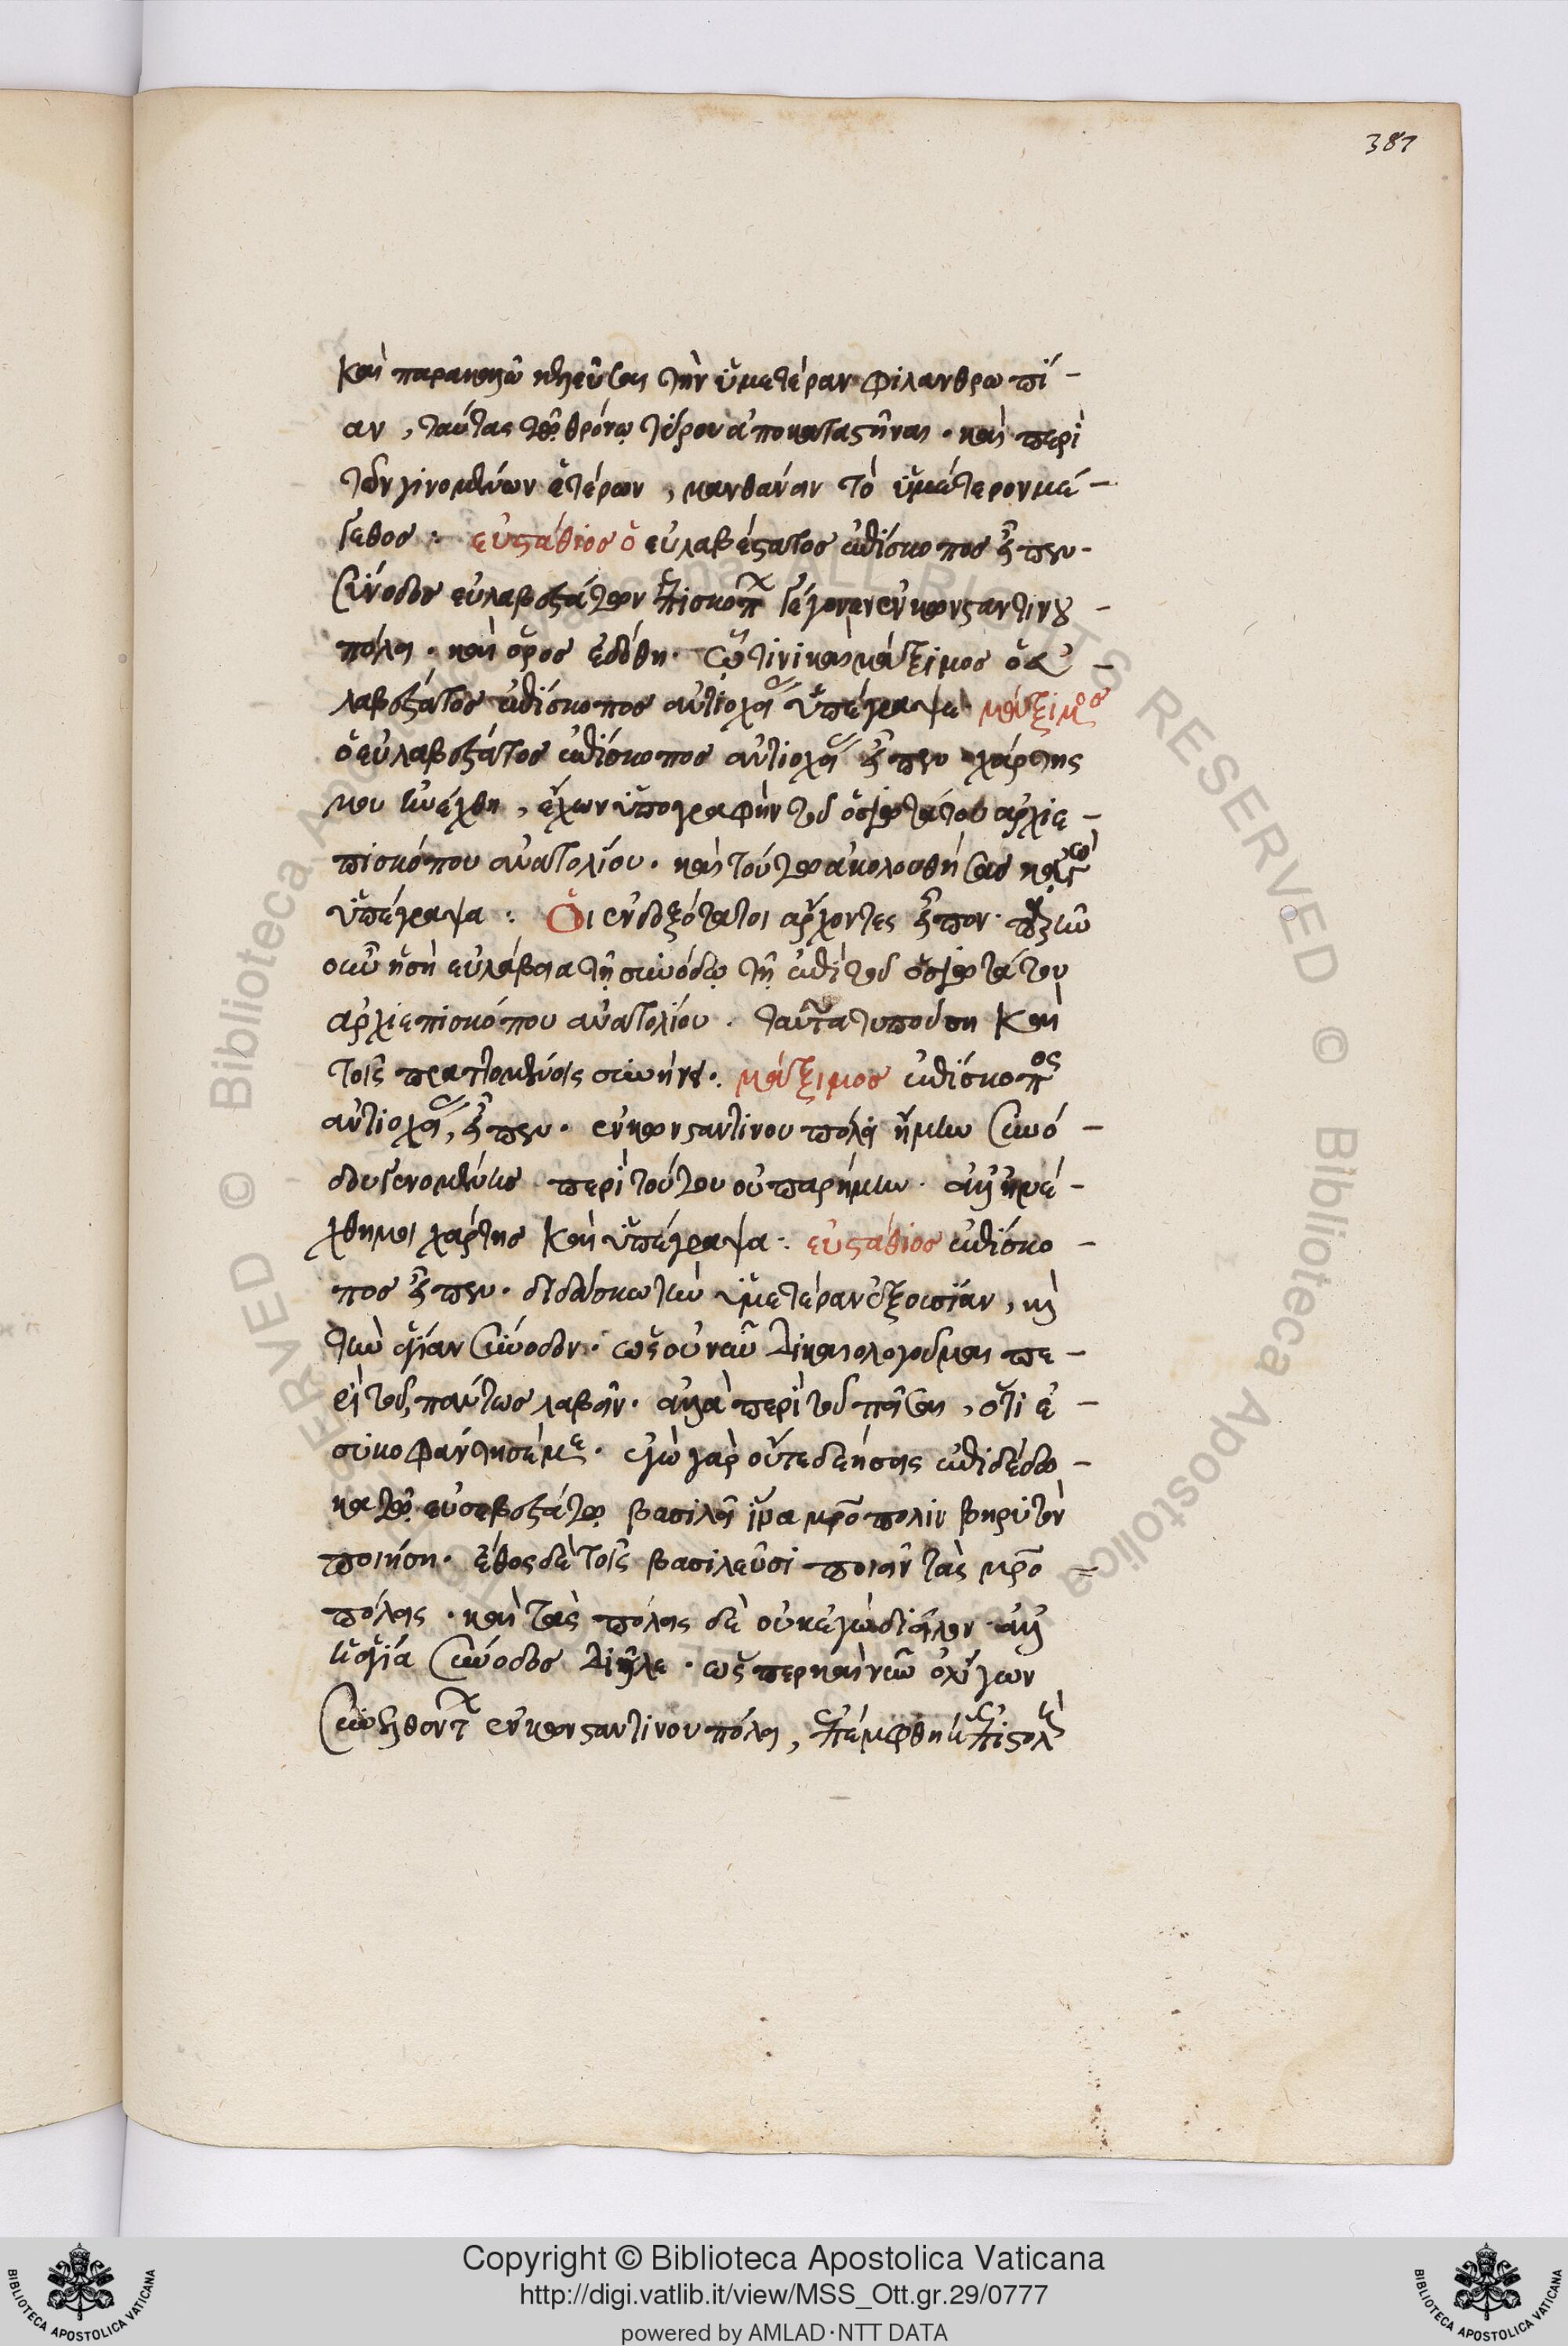 381
καὶ παρακαλῶ κελεῦσαι τὴν ὑμετέραν φιλανθρωπί-
αν, ταύτας τῷ θρόνῳ τύρου ἀποκαταστῆναι. καὶ περὶ
τῶν γινομένων ἑτέρων, μανθάνειν τὸ ὑμέτερον μέ-
γεθος: εὐστάθιος ὁ εὐλαβέστατος ἐπίσκοπος εἶπεν.
Σύνοδος εὐλαβεστάτων ἐπισκόπ γέγονεν ἐν κωνσταντινου-
πόλει. καὶ ὅρος ἐδόθη. ᾧτινι καὶ μάξιμος ὁ εὐ-
λαβέστατος ἐπίσκοπος ἀντιοχεί ὑπέγραψε. μάξιμος
ὁ εὐλαβέστατος ἐπίσκοπος ἀντιοχεί εἶπεν χάρτης
μου ἠνέχθη, ἔχων ὑπογραφὴν τοῦ ὁσιωτάτου ἀρχιε-
πισκόπου ἀνατολίου. καὶ τούτῳ ἀκολουθήσας κἀγὼ
ὑπέγραψα: Οἱ ἐνδοξότατοι ἄρχοντες εἶπον.
ἡ σὴ εὐλάβεια τῇ συνόδῳ τῇ ἐπὶ τοῦ ὁσιωτάτου
ἀρχιεπισκόπου ἀνατολίου. ταῦτα τυπούσῃ καὶ
τοῖς πραττομένοις συνῄνει. μάξιμος ἐπίσκοπος
ἀντιοχεί, εἶπεν. ἐν κωνσταντινουπόλει ἤμην συνό-
δου γενομένης περὶ τούτου οὐ παρήμην. ἀλλ' ἠνέ-
χθη μοι χάρτης καὶ ὑπέγραψα: εὐστάθιος ἐπίσκο-
πος εἶπεν. διδάσκω τὴν ὑμετέραν ἐξουσίαν, καὶ
τὴν ἁγίαν σύνοδον. ὡς οὐ νῦν δικαιολογοῦμαι πε-
ρὶ τοῦ πάντως λαβεῖν. ἀλλὰ περὶ τοῦ πεῖσαι, ὅτι ἐ-
συκοφάντησέ με. ἐγὼ γὰρ οὔτε δεήσεις ἐπιδέδω-
κα τῷ εὐσεβεστάτῳ βασιλεῖ ἵνα μρόπολιν βηρυτὸν
ποιήσῃ. ἔθος δὲ τοῖς βασιλεῦσι ποιεῖν τὰς μρο
πόλεις. καὶ τὰς πόλεις δὲ οὐκ ἐγὼ διεῖλον ἀλλ'
ἡ ἁγία σύνοδος διεῖλε. ὥσπερ καὶ νῦν ὀλίγων
συνελθόντ ἐν κωνσταντινουπόλει, ἐπέμφθη ἡ ἐπιστολὴ
Copyright © Biblioteca Apostolica Vaticana
http://digi.vatlib.it/view/MSS_Ott.gr.29/0777
powered by AMLAD·NTT DATA